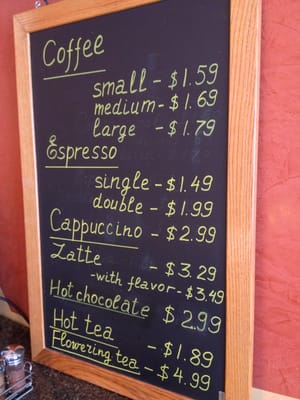 Coffee
small - $1.59
medium - $1.69
large - $1.79
Espresso
single - $1.49
double - $1.99
Cappuccino - $2.99
Latte - $3.29
-with flavor - $3.49
Hot chocolate $2.99
Hot tea - $1.89
Flowering tea - $4.99